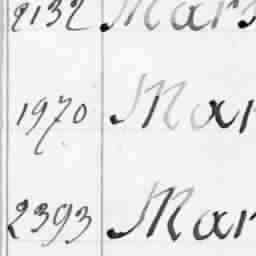 2132 Mars
1970 Mar
2393 Mar